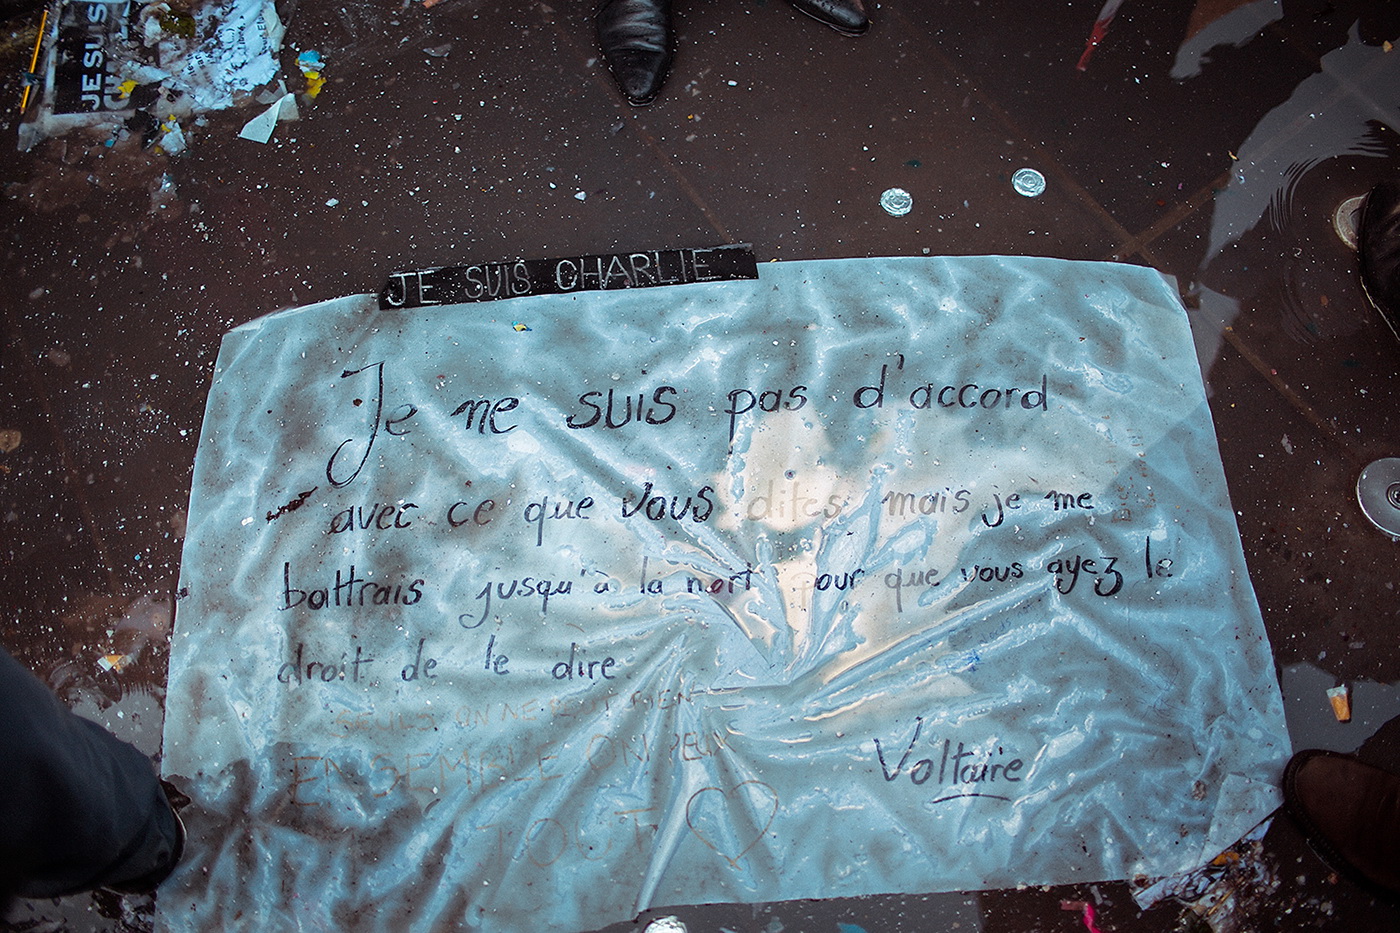 JE SUIS
JE SUIS CHARLIE
Je ne suis pas d'accord
avec ce que vous dites mais je me
battrais jusqu'à la mort pour que vous ayez le
droit de le dire.
SEULS ON NE PEUT RIEN
ENSEMBLE ON PEUT
TOUT
Voltaire